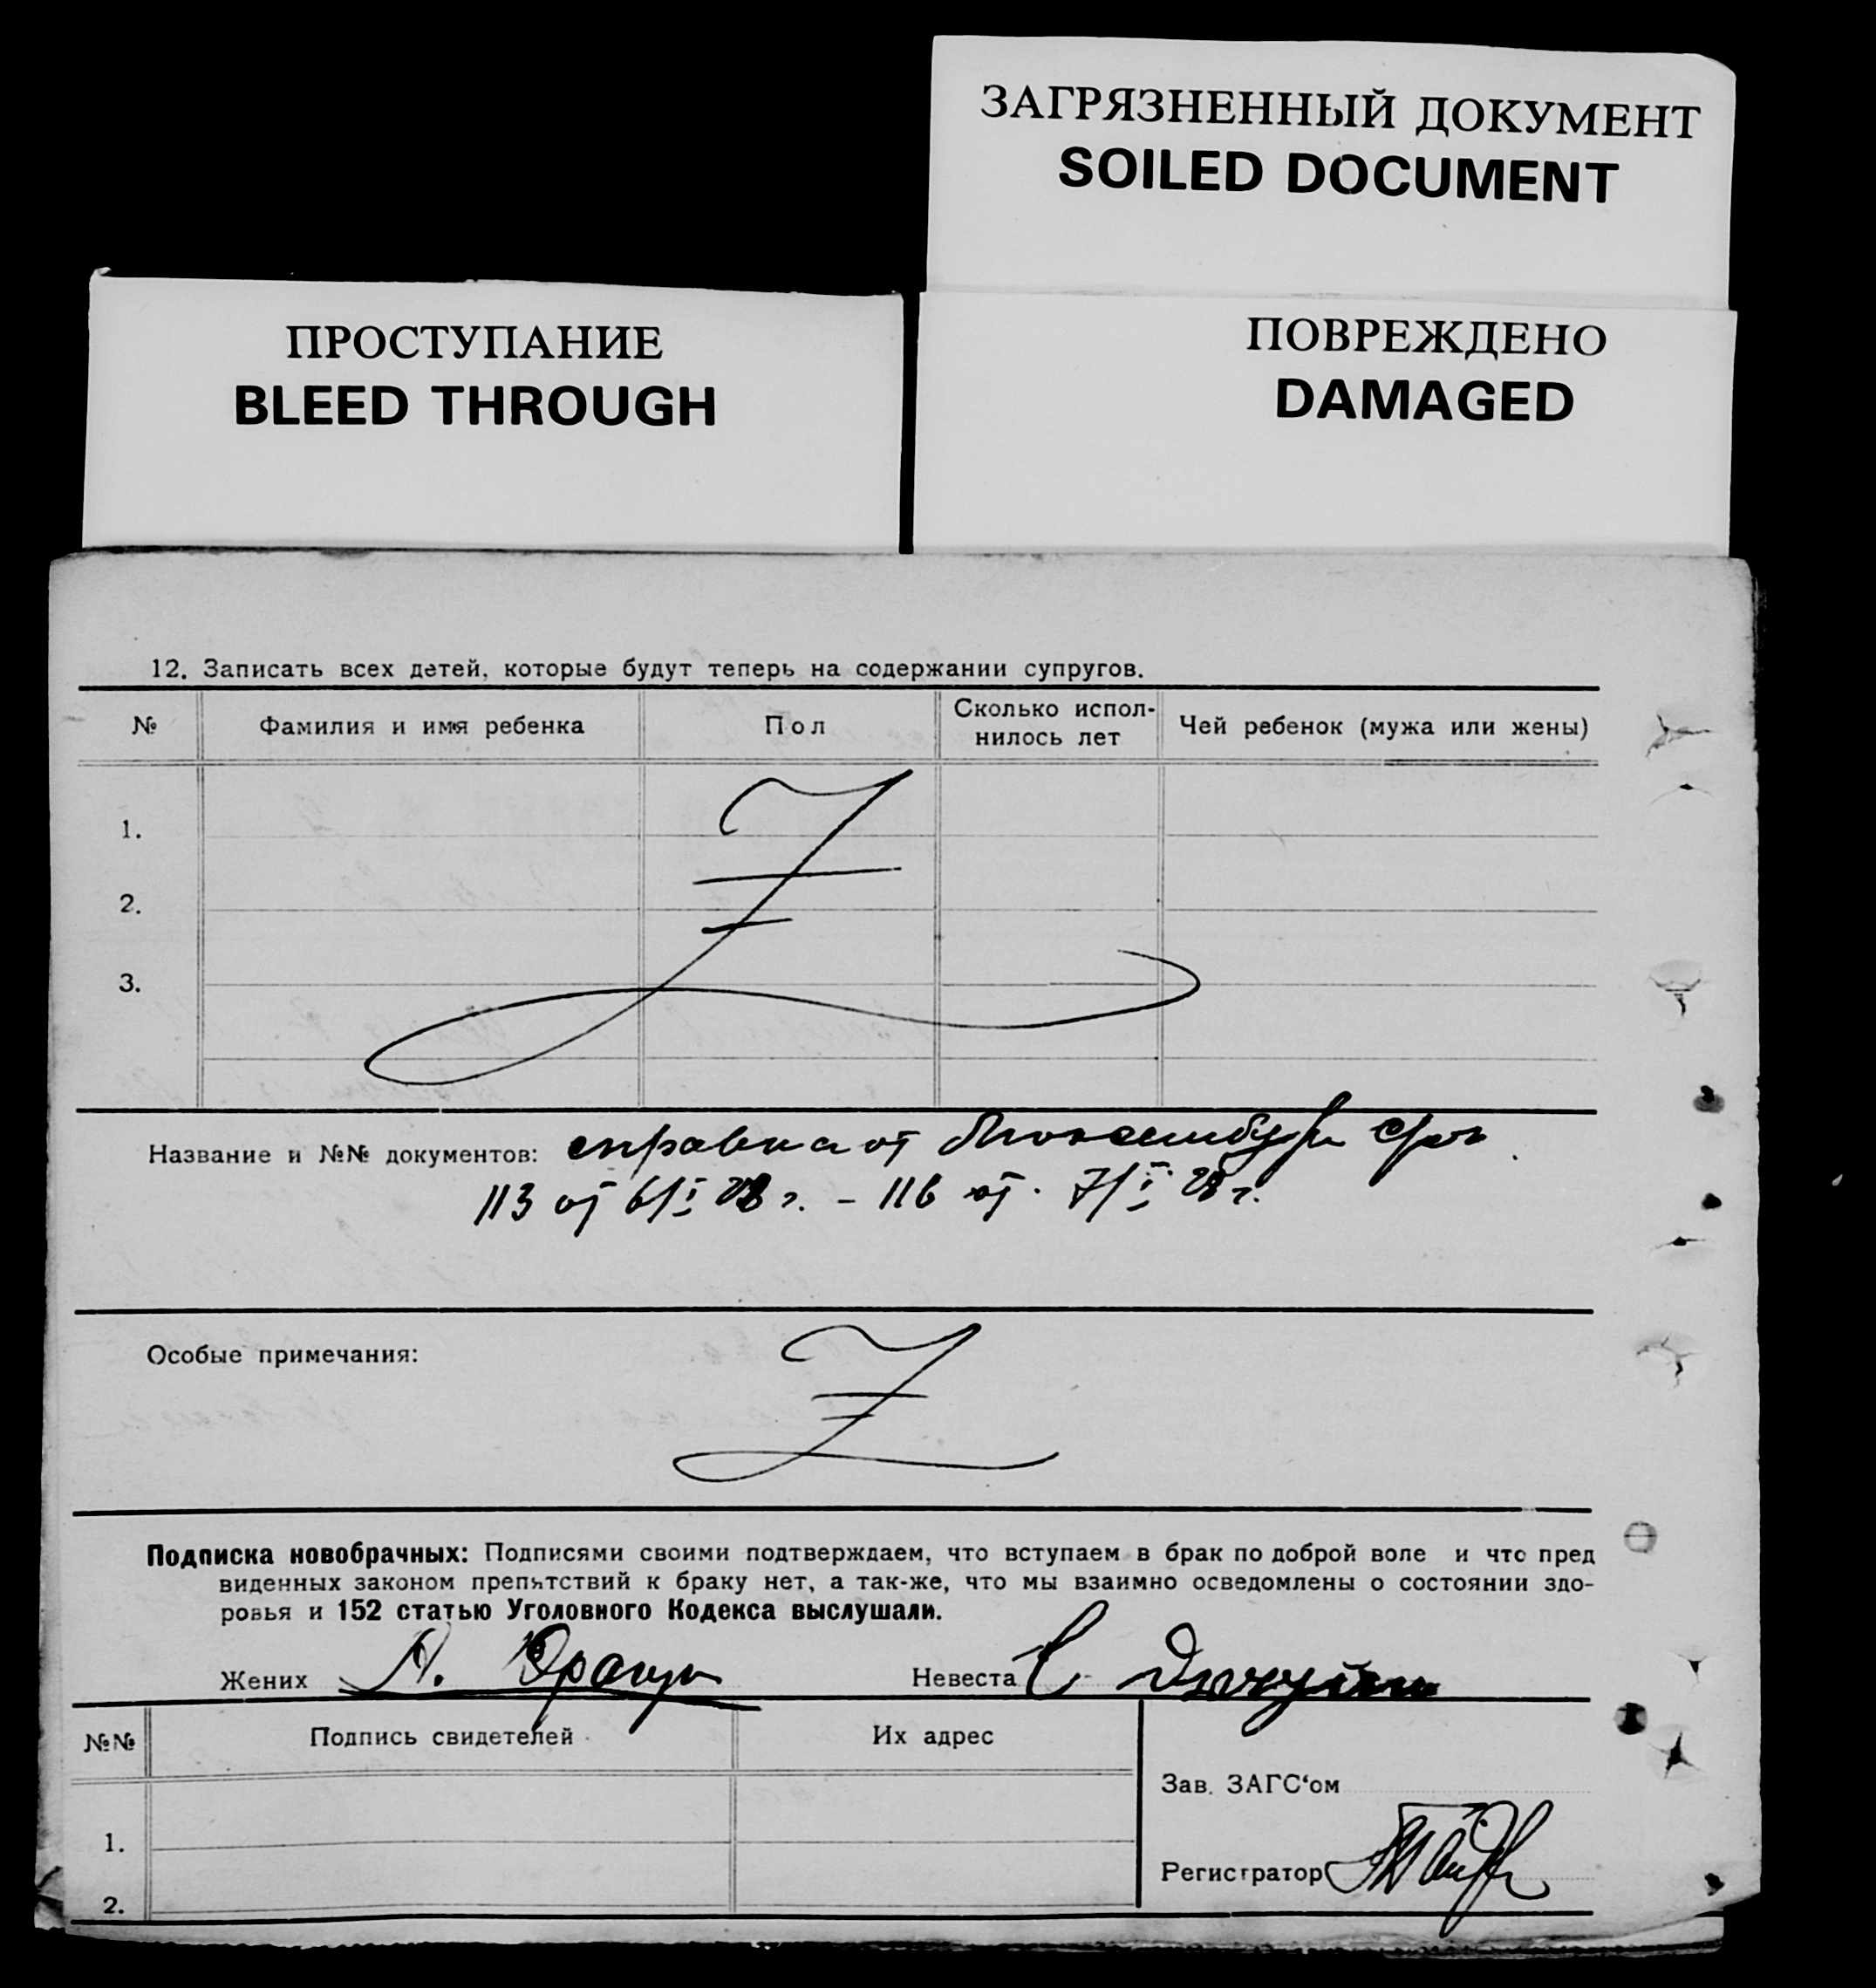 ЗАГРЯЗНЕННЫЙ ДОКУМЕНТ
SOILED DOCUMENT
ПРОСТУПАНИЕ
BLEED THROUGH
ПОВРЕЖДЕНО
DAMAGED
12. Записать всех детей, которые будут теперь на содержании супругов.
№ Фамилия и имя ребенка Пол Сколько испол-нилось лет Чей ребенок (мужа или жены)
1.
2.
3.
Название и №№ документов: справка от
113 от 6/I 28 г. – 116 от 7/I 28 г.
Особые примечания:
Подписка новобрачных: Подписями своими подтверждаем, что вступаем в брак по доброй воле и что пред
виденных законом препятствий к браку нет, а так-же, что мы взаимно осведомлены о состоянии здо-
ровья и 152 статью Уголовного Кодекса выслушали.
Жених Невеста
№№ Подпись свидетелей Их адрес
Зав. ЗАГС‘ом
1.
Регистратор
2.